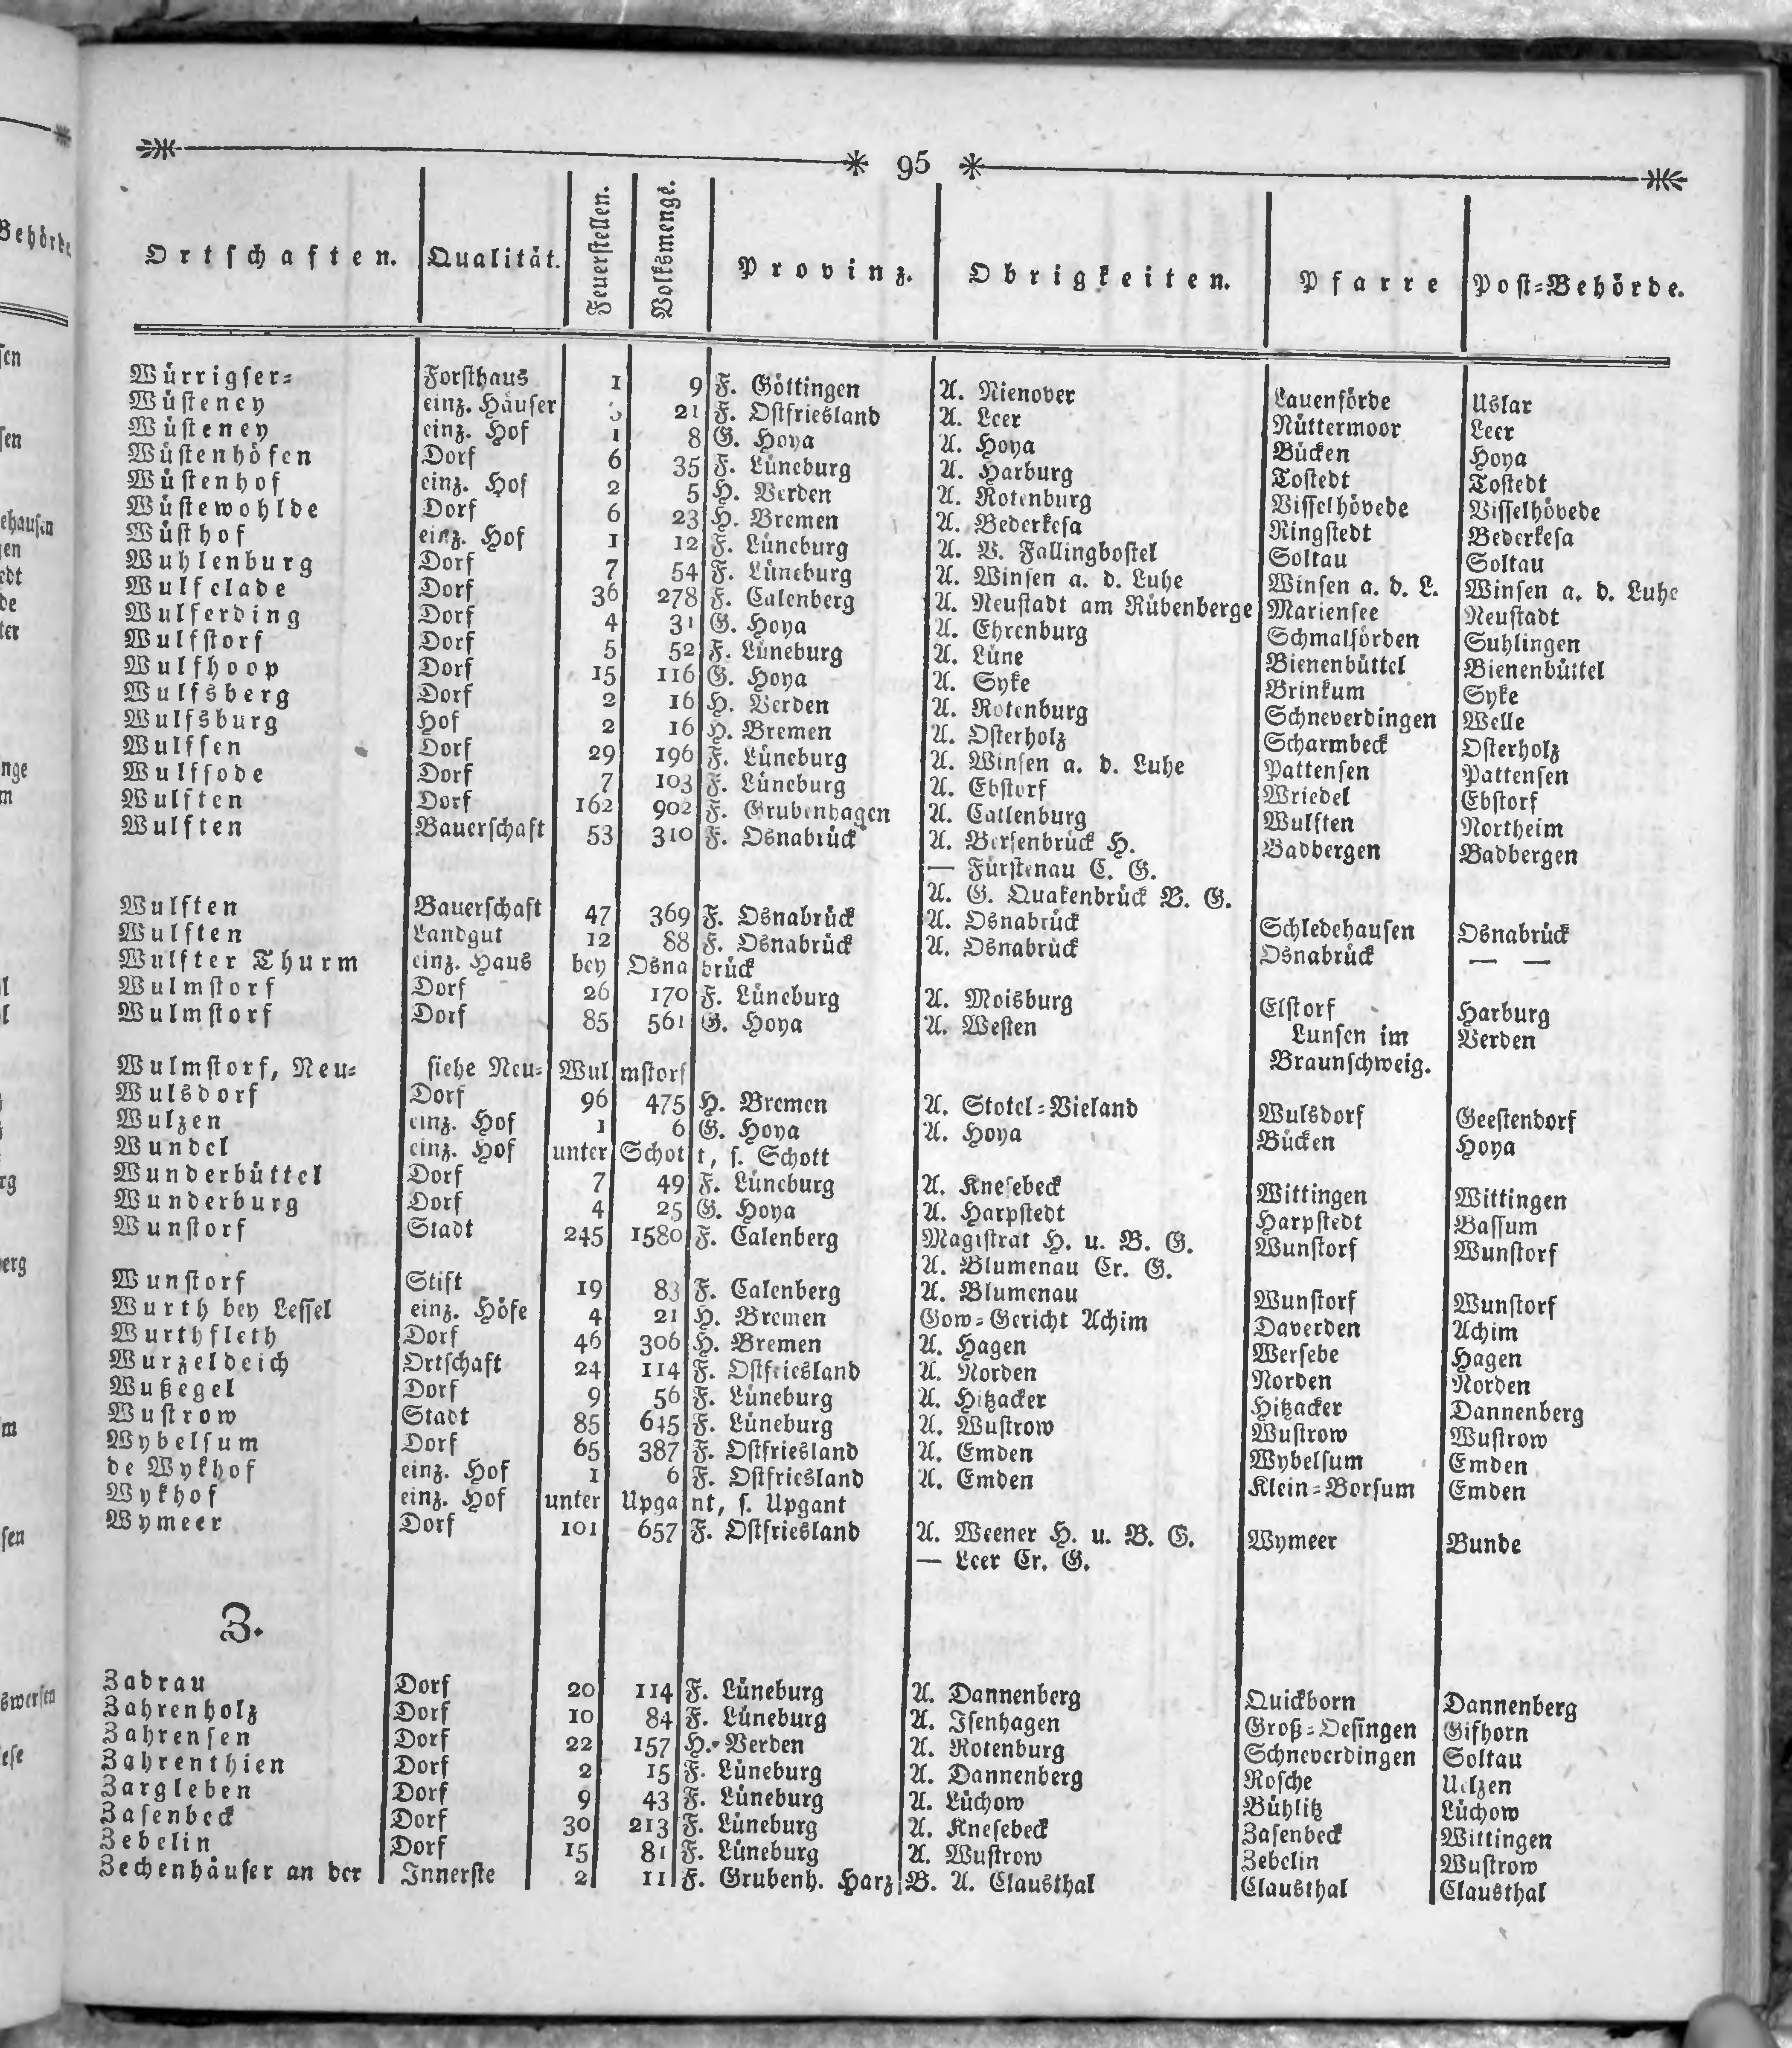 95
Ortschaften. Qualität. Feuerstellen. Volksmenge. Provinz. Obrigkeiten. Pfarre Post=Behörde.
Würrigser= Forsthaus 1 9 F. Göttingen A. Nienover Lauenförde Uslar
Wüsteney einz. Häuser 21 F. Ostfriesland A. Leer Nüttermoor Leer
Wüsteney einz. Hof 1 8 G. Hoya A. Hoya Bücken Hoya
Wüstenhöfen Dorf 6 35 F. Lüneburg A. Harburg Tostedt Tostedt
Wüstenhof einz. Hof 2 5 H. Verden A. Rotenburg Visselhövede Visselhövede
Wüstewohlde Dorf 6 23 H. Bremen A. Bederkesa Ringstedt Bederkesa
Wüsthof einz. Hof 1 12 F. Lüneburg A. V. Fallingbostel Soltau Soltau
Wuhlenburg Dorf 7 54 F. Lüneburg A. Winsen a. d. Luhe Winsen a. d. L. Winsen a. d. Luhe
Wulfelade Dorf 36 278 F. Calenberg A. Neustadt am Rübenberge Mariensee Neustadt
Wulferding Dorf 4 31 G. Hoya A. Ehrenburg Schmalförden Suhlingen
Wulfstorf Dorf 5 52 F. Lüneburg A. Lüne Bienenbüttel Bienenbüttel
Wulfhoop Dorf 15 116 G. Hoya A. Syke Brinkum Syke
Wulfsberg Dorf 2 16 H. Verden A. Rotenburg Schneverdingen Welle
Wulfsburg Hof 2 16 H. Bremen A. Osterholz Scharmbeck Osterholz
Wulfsen Dorf 29 196 F. Lüneburg A. Winsen a. d. Luhe Pattensen Pattensen
Wulfsode Dorf 7 103 F. Lüneburg A. Ebstorf Wriedel Ebstorf
Wulften Dorf 162 902 F. Grubenhagen A. Catlenburg Wulften Northeim
Wulften Bauerschaft 53 310 F. Osnabrück A. Bersenbrück H. Badbergen Badbergen
— Fürstenau C. G.
A. G. Quakenbrück B. G.
Wulften Bauerschaft 47 369 F. Osnabrück A. Osnabrück Schledehausen Osnabrück
Wulften Landgut 12 88 F. Osnabrück A. Osnabrück Osnabrück — —
Wulfter Thurm einz. Haus bey Osnabrück
Wulmstorf Dorf 26 170 F. Lüneburg A. Moisburg Elstorf Harburg
Wulmstorf Dorf 85 561 G. Hoya A. Westen Lunsen im Verden
Braunschweig.
Wulmstorf, Neu= siehe Neu=Wulmstorf
Wulsdorf Dorf 96 475 H. Bremen A. Stotel=Vieland Wulsdorf Geestendorf
Wulzen einz. Hof 1 6 G. Hoya A. Hoya Bücken Hoya
Wundel einz. Hof unter Schott, s. Schott
Wunderbüttel Dorf 7 49 F. Lüneburg A. Knesebeck Wittingen Wittingen
Wunderburg Dorf 4 25 G. Hoya A. Harpstedt Harpstedt Bassum
Wunstorf Stadt 245 1580 F. Calenberg Magistrat H. u. B. G. Wunstorf Wunstorf
A. Blumenau Cr. G.
Wunstorf Stift 19 83 F. Calenberg A. Blumenau Wunstorf Wunstorf
Wurth bey Lessel einz. Höfe 4 21 H. Bremen Gow=Gericht Achim Daverden Achim
Wurthfleth Dorf 46 306 H. Bremen A. Hagen Wersebe Hagen
Wurzeldeich Ortschaft 24 114 F. Ostfriesland A. Norden Norden Norden
Wußegel Dorf 9 56 F. Lüneburg A. Hitzacker Hitzacker Dannenberg
Wustrow Stadt 85 645 F. Lüneburg A. Wustrow Wustrow Wustrow
Wybelsum Dorf 65 387 F. Ostfriesland A. Emden Wybelsum Emden
de Wykhof einz. Hof 1 6 F. Ostfriesland A. Emden Klein=Borsum Emden
Wykhof einz. Hof unter Upgant, s. Upgant
Wymeer Dorf 101 657 F. Ostfriesland A. Weener H. u. B. G. Wymeer Bunde
— Leer Cr. G.
Z.
Zadrau Dorf 20 114 F. Lüneburg A. Dannenberg Quickborn Dannenberg
Zahrenholz Dorf 10 84 F. Lüneburg A. Isenhagen Groß=Oesingen Gifhorn
Zahrensen Dorf 22 157 H. Verden A. Rotenburg Schneverdingen Soltau
Zahrenthien Dorf 2 15 F. Lüneburg A. Dannenberg Rosche Uelzen
Zargleben Dorf 9 43 F. Lüneburg A. Lüchow Bühlitz Lüchow
Zasenbeck Dorf 30 213 F. Lüneburg A. Knesebeck Zasenbeck Wittingen
Zebelin Dorf 15 81 F. Lüneburg A. Wustrow Zebelin Wustrow
Zechenhäuser an der Innerste 2 11 F. Grubenh. Harz B. A. Clausthal Clausthal Clausthal